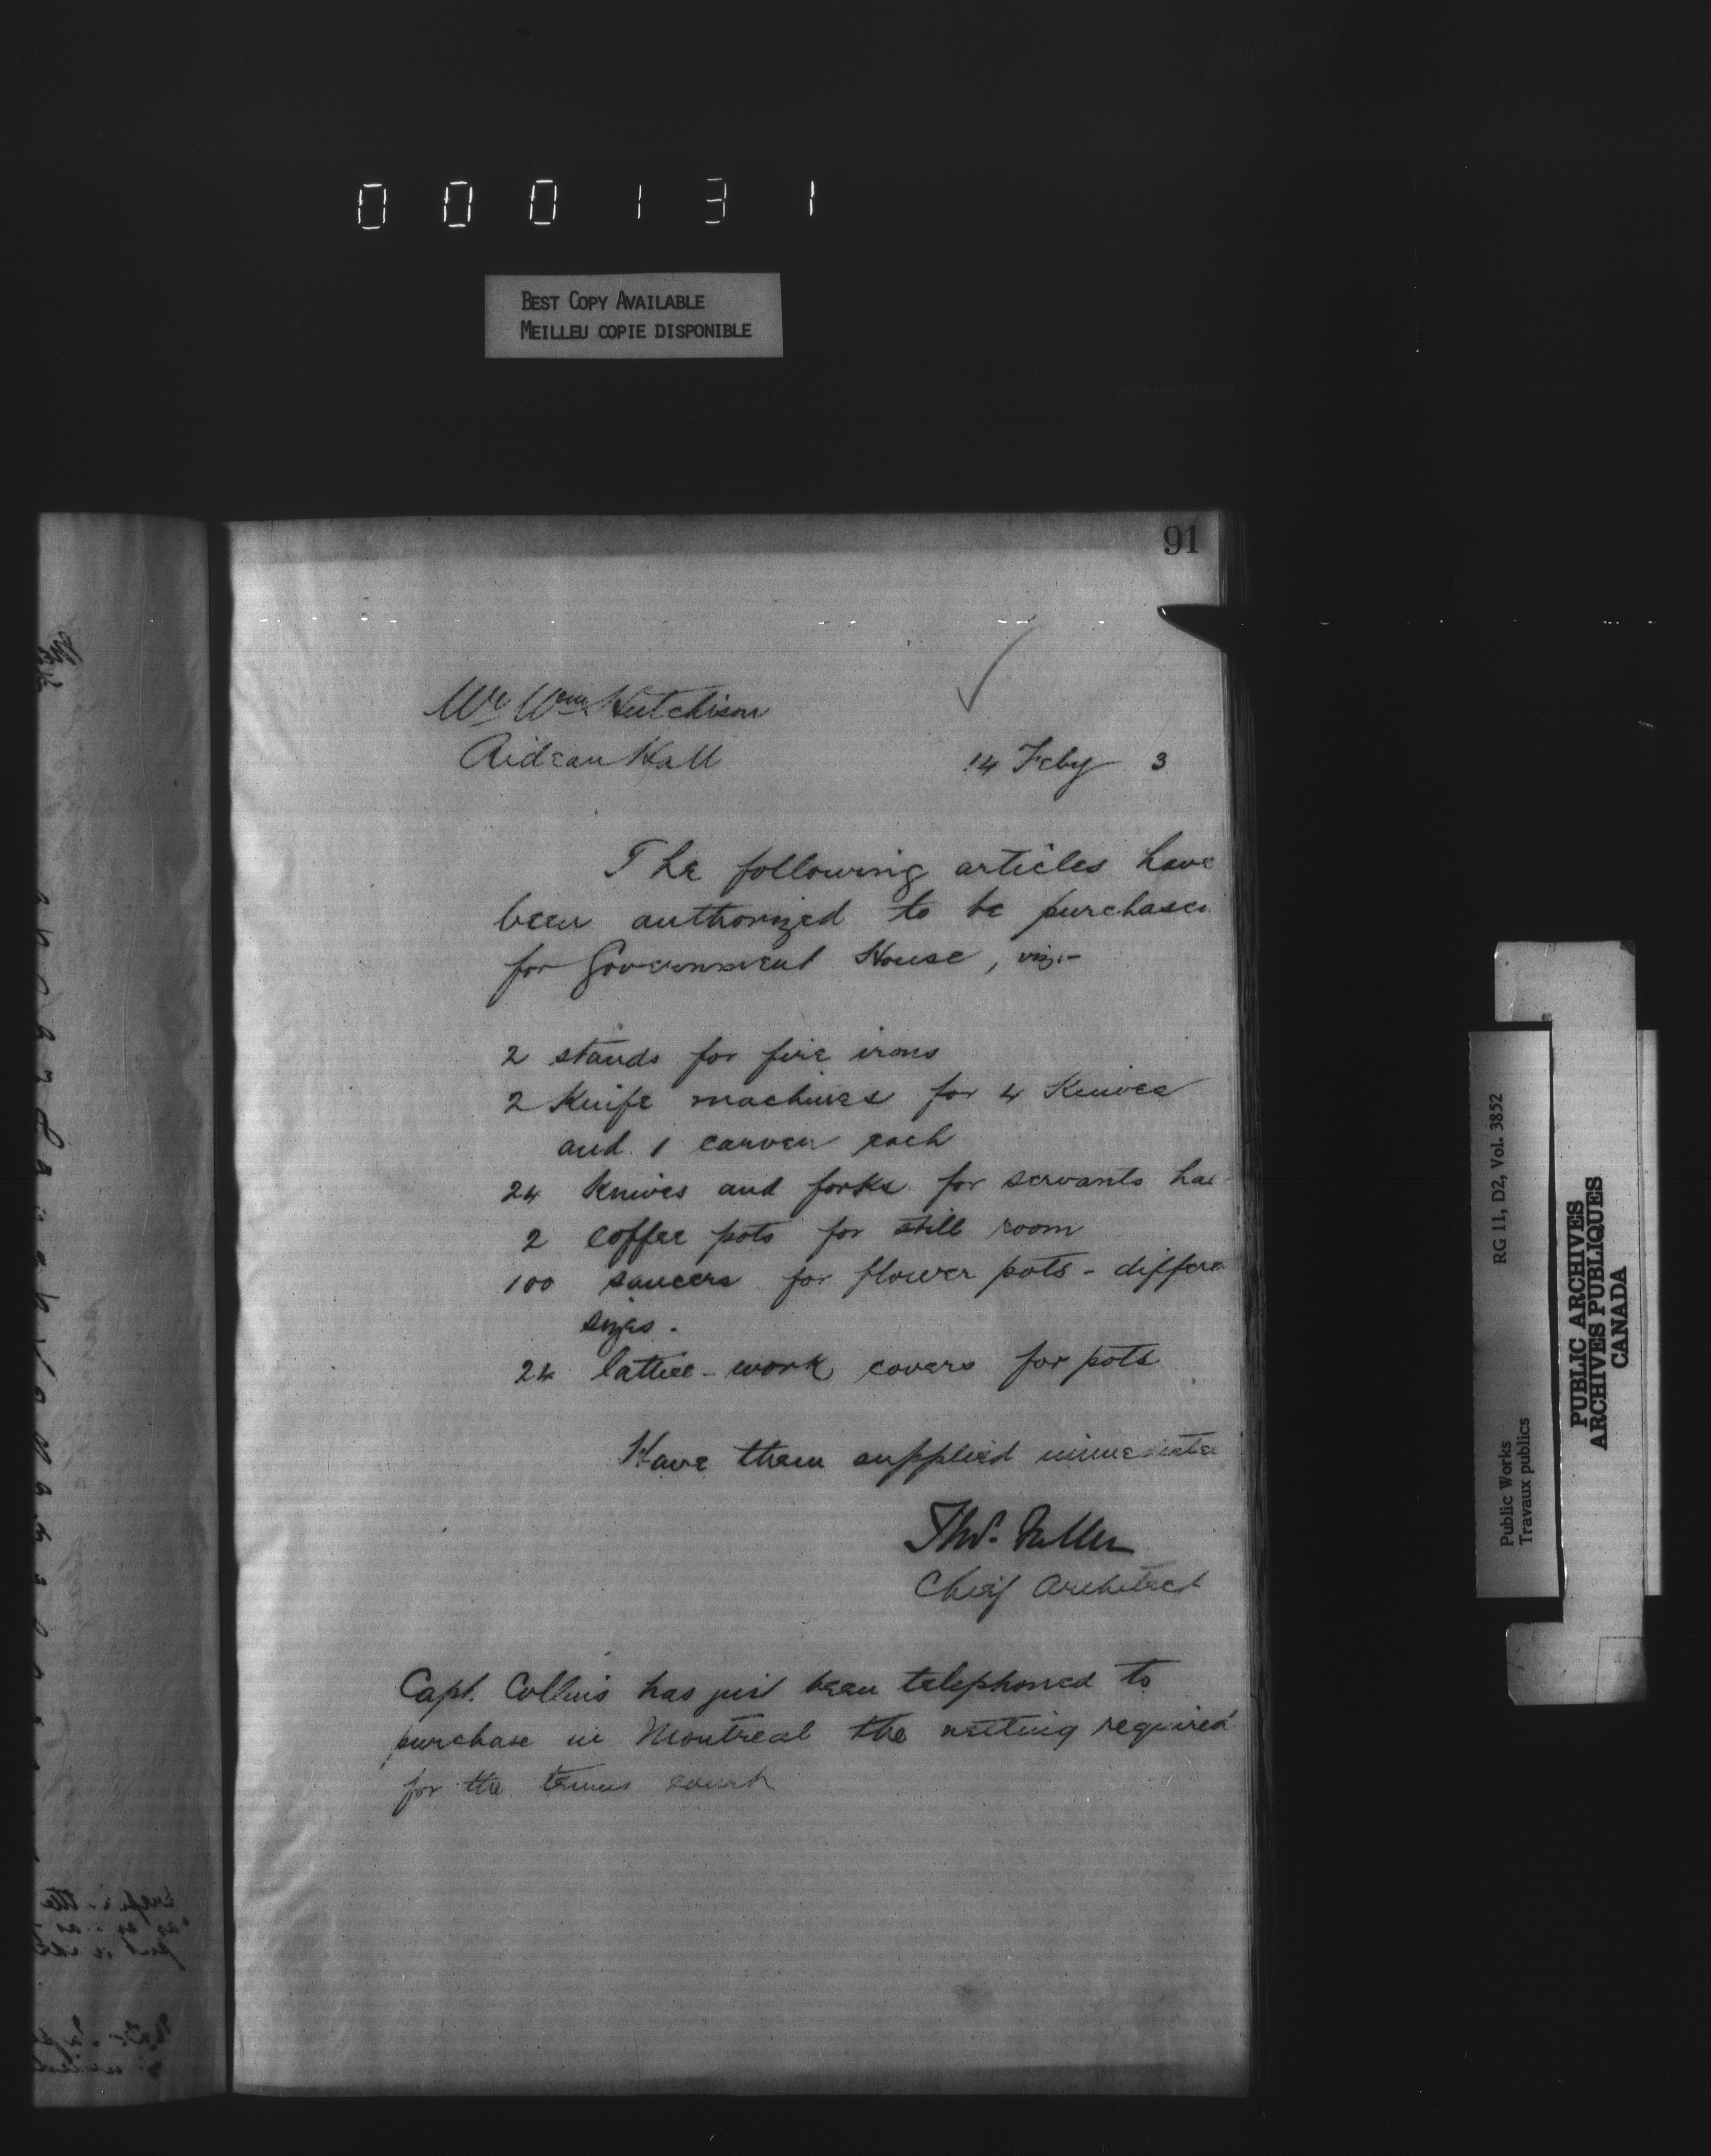 000131
BEST COPY AVAILABLE
MEILLEU COPIE DISPONIBLE
91
Mr Wm Hutchison
Rideau Hall
14 Feby 3
The following articles have
been authorized to be purchased
for Government House, viz:-
2 stands for fire irons
2 Knife machines for 4 Knives
and 1 carver each
24 Knives and forks for servants hal
2 coffee pots for still room
100 saucers for flower pots - differen
sizes.
24 lattice-work covers for pots
Have them supplied immediate
Thos. Fuller
Chief Architect
Capt. Collins has just been telephoned to
purchase in Montreal the netting required
for the tennis court
RG 11, D2, Vol. 3852
Public Works
Travaux publics
PUBLIC ARCHIVES
ARCHIVES PUBLIQUES
CANADA